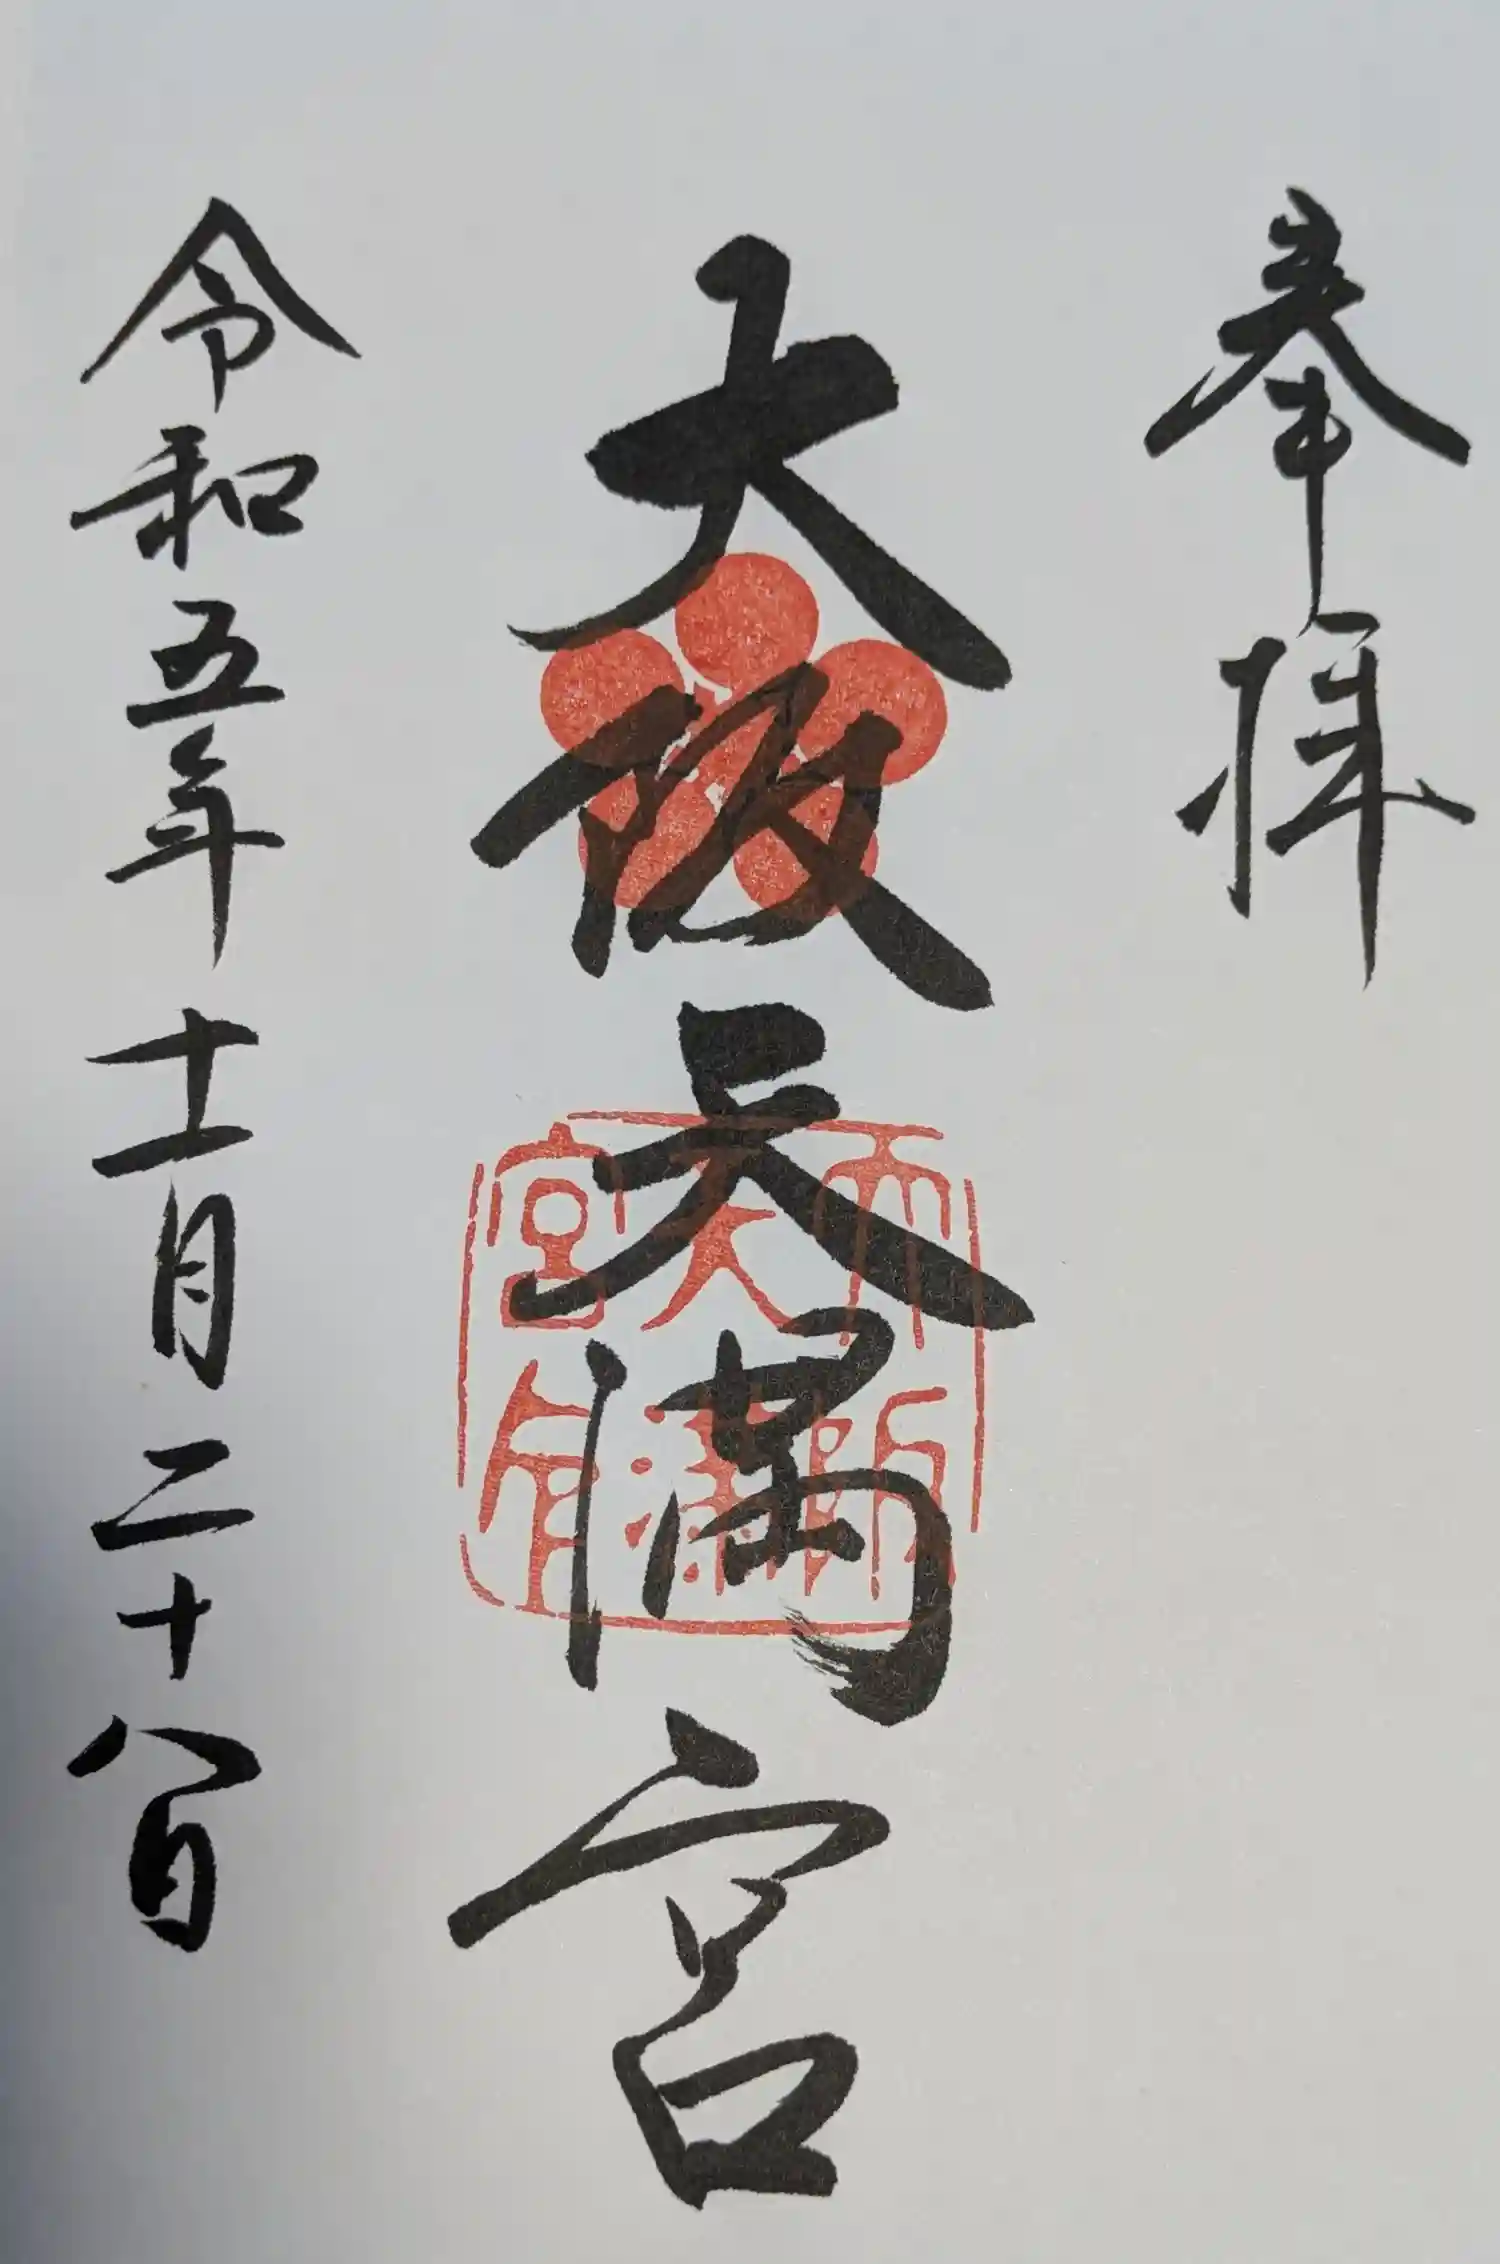 奉拝
大阪天満宮
令和五年十二月二十八日